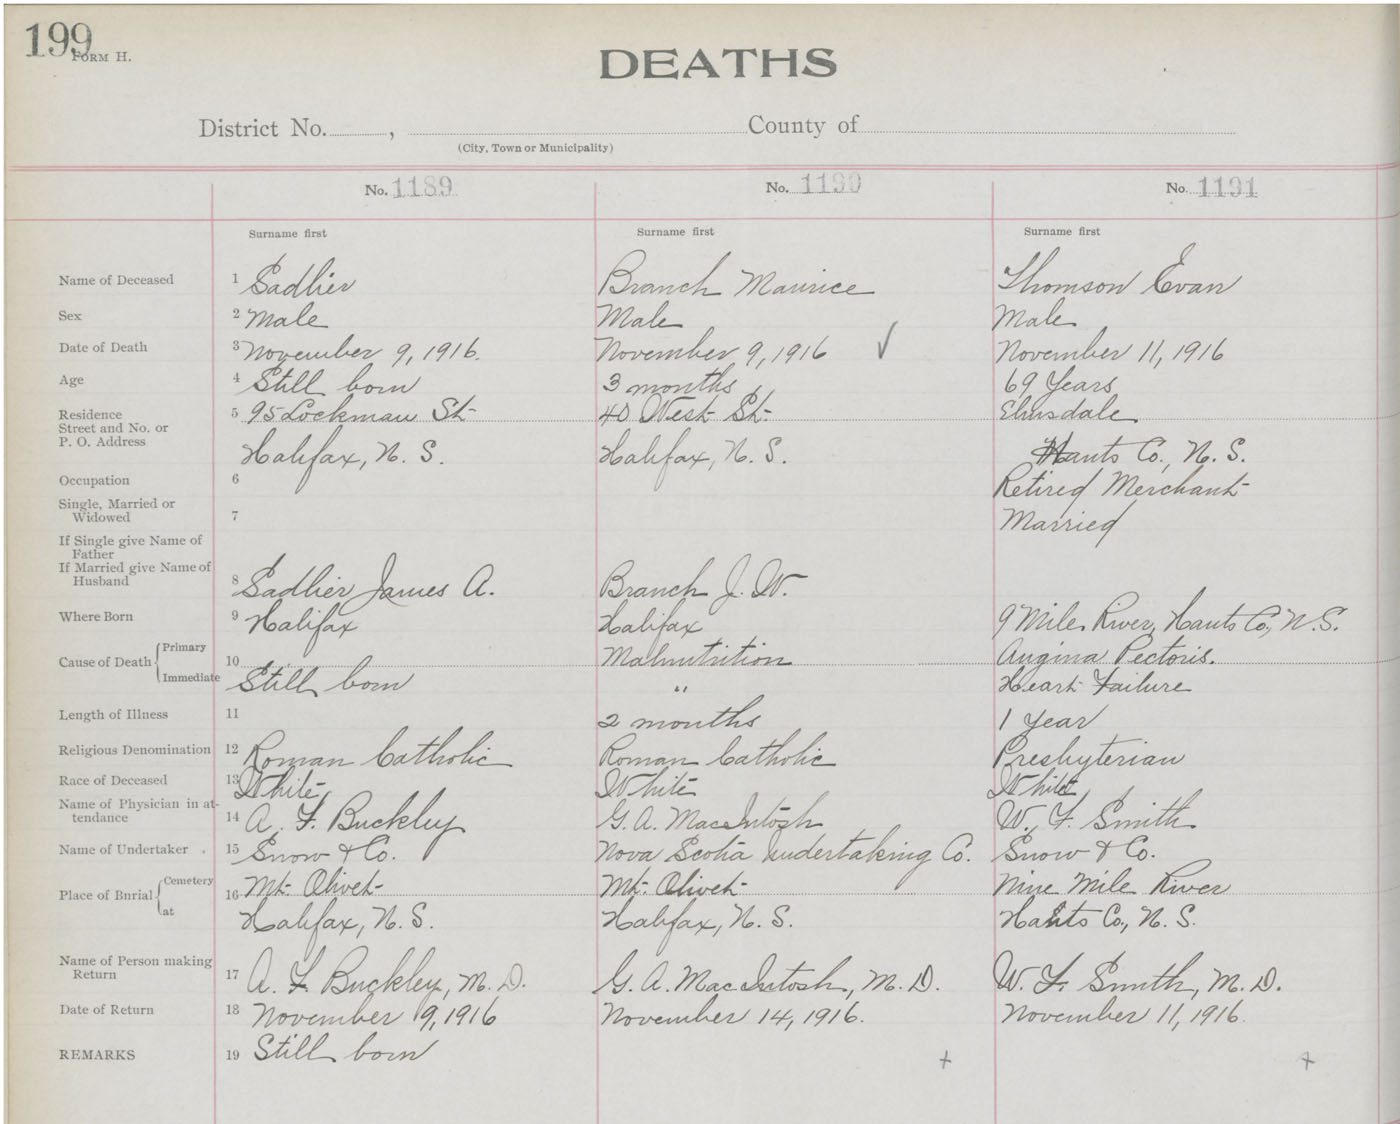 199
FORM H.
DEATHS
District No. , County of
(City, Town or Municipality)
No. 1189 No. 1190 No. 1191
Surname first Surname first Surname first
Name of Deceased 1 Sadlier Branch Maurice Thomson Evan
Sex 2 Male Male Male
Date of Death 3 November 9, 1916. November 9, 1916 ✓ November 11, 1916
Age 4 Still born 3 months 69 Years
Residence 5 95 Lockman St- 40 West St- Elmsdale
Street and No. or
P. O. Address Halifax, N. S. Halifax, N. S. Hants Co., N. S.
Occupation 6 Retired Merchant
Single, Married or
Widowed 7 Married
If Single give Name of
Father
If Married give Name of
Husband 8 Sadlier James A. Branch J. W.
Where Born 9 Halifax Halifax 9 Mile River, Hants Co., N. S.
Cause of Death Primary 10 Malnutrition Angina Pectoris.
Immediate Still born " Heart Failure
Length of Illness 11 2 months 1 Year
Religious Denomination 12 Roman Catholic Roman Catholic Presbyterian
Race of Deceased 13 White White White
Name of Physician in at-
tendance 14 A. F. Buckley G. A. MacIntosh W. F. Smith
Name of Undertaker 15 Snow & Co. Nova Scotia Undertaking Co. Snow & Co.
Place of Burial Cemetery 16 Mt- Olivet- Mt- Olivet- Nine Mile River
at Halifax, N. S. Halifax, N. S. Hants Co., N. S.
Name of Person making
Return 17 A. F. Buckley, M. D. G. A. MacIntosh, M. D. W. F. Smith, M. D.
Date of Return 18 November 9, 1916 November 14, 1916. November 11, 1916.
REMARKS 19 Still born + +